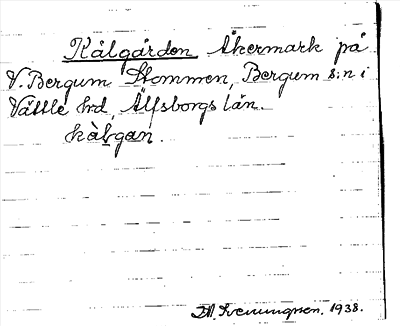 Kålgården Åkermark på
V. Bergum Stommen, Bergum s:n i
Vättle hd, Älfsborgs län.
kålgan.
1938.